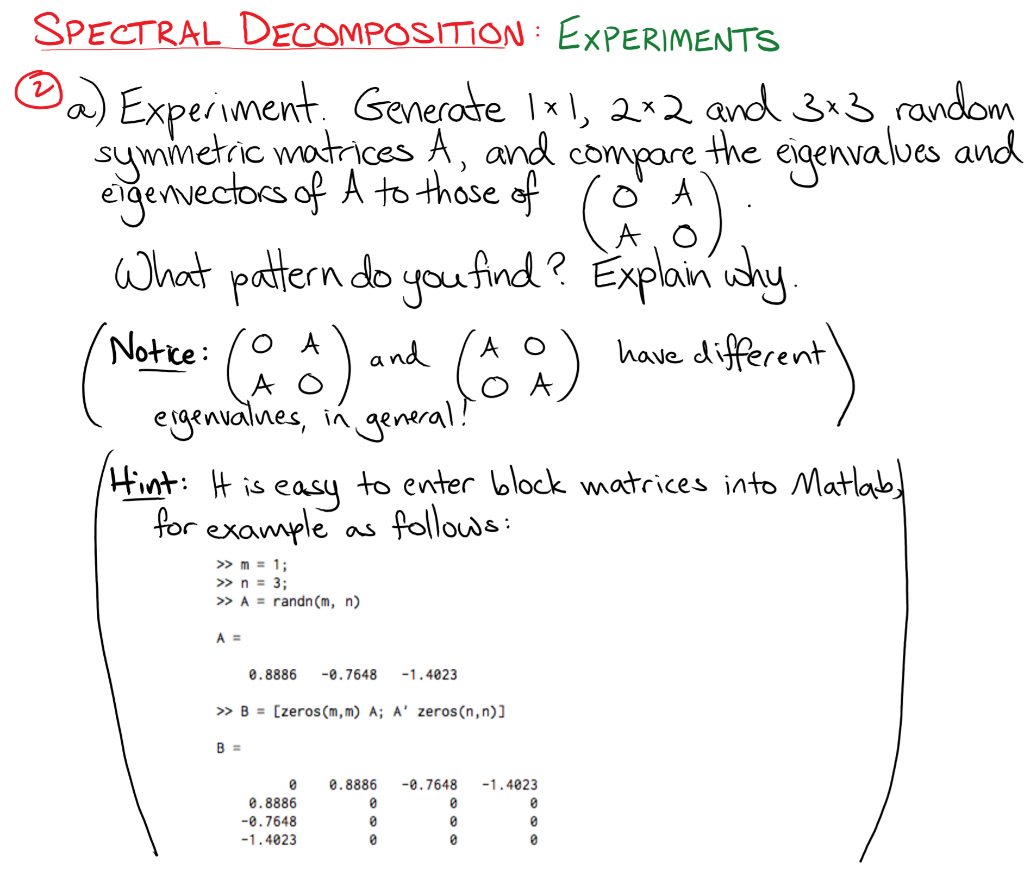 SPECTRAL DECOMPOSITION: EXPERIMENTS
② a) Experiment. Generate 1×1, 2×2 and 3×3 random
symmetric matrices A, and compare the eigenvalues and
eigenvectors of A to those of (0 A
A 0).
What pattern do you find? Explain why.
(Notice: (0 A and (A 0 have different
A 0) 0 A)
eigenvalues, in general!)
(Hint: It is easy to enter block matrices into Matlab,
for example as follows:
>> m = 1;
>> n = 3;
>> A = randn(m, n)
A =
0.8886 -0.7648 -1.4023
>> B = [zeros(m,m) A; A' zeros(n,n)]
B =
0 0.8886 -0.7648 -1.4023
0.8886 0 0 0
-0.7648 0 0 0
-1.4023 0 0 0
)